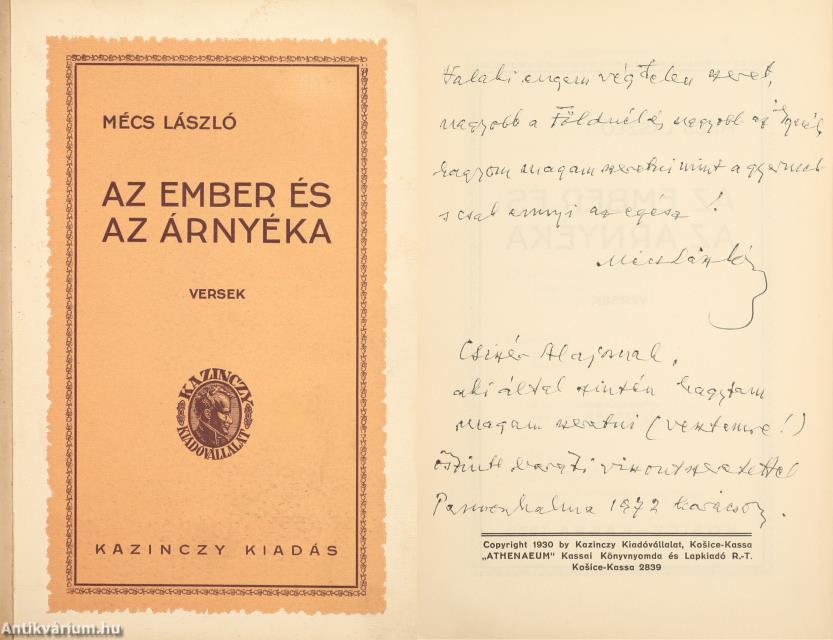 MÉCS LÁSZLÓ
AZ EMBER ÉS
AZ ÁRNYÉKA
VERSEK
KAZINCZY
KIADÓVÁLLALAT
KAZINCZY KIADÁS
Valaki engem végtelen szeret,
nagyobb a Földnél és nagyobb az Égnél,
hagyom magam szeretni mint a gyermek
s csak ennyi az egész!
Mécs László
Alajosnak,
aki által szintén hagytam
magam szeretni (vesztemre!)
őszinte baráti viszontszeretettel
Pannonhalma 1972 karácsony.
Copyright 1930 by Kazinczy Kiadóvállalat, Košice-Kassa
„ATHENAEUM" Kassai Könyvnyomda és Lapkiadó R.-T.
Košice-Kassa 2839
Antikvárium.hu